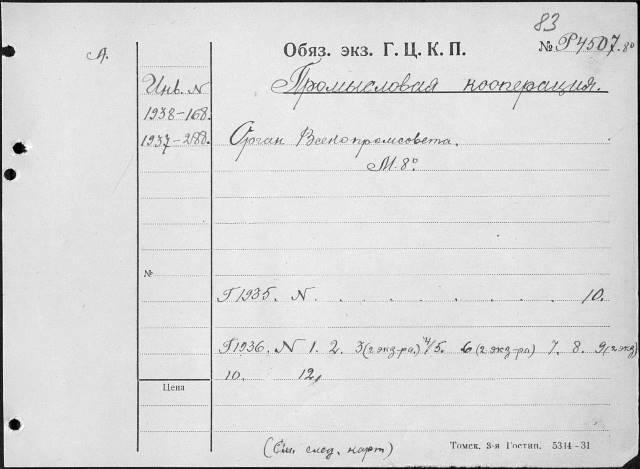 83
А.
Обяз. экз. Г. Ц. К. П.
№ Р4507.8°
Инв. N
Промысловая кооперация.
1938-168.
1937-288.
Орган Всекопромсовета.
М. 8°
№
Г1935. N . . . . . . . 10.
Г1936. N 1. 2. 3 (2 экз-ра.) 4/5. 6 (2 экз-ра) 7. 8. 9 (2 экз)
10. 12.
Цена
(См. след. карт)
Томск. 3-я Гостип. 5314-31